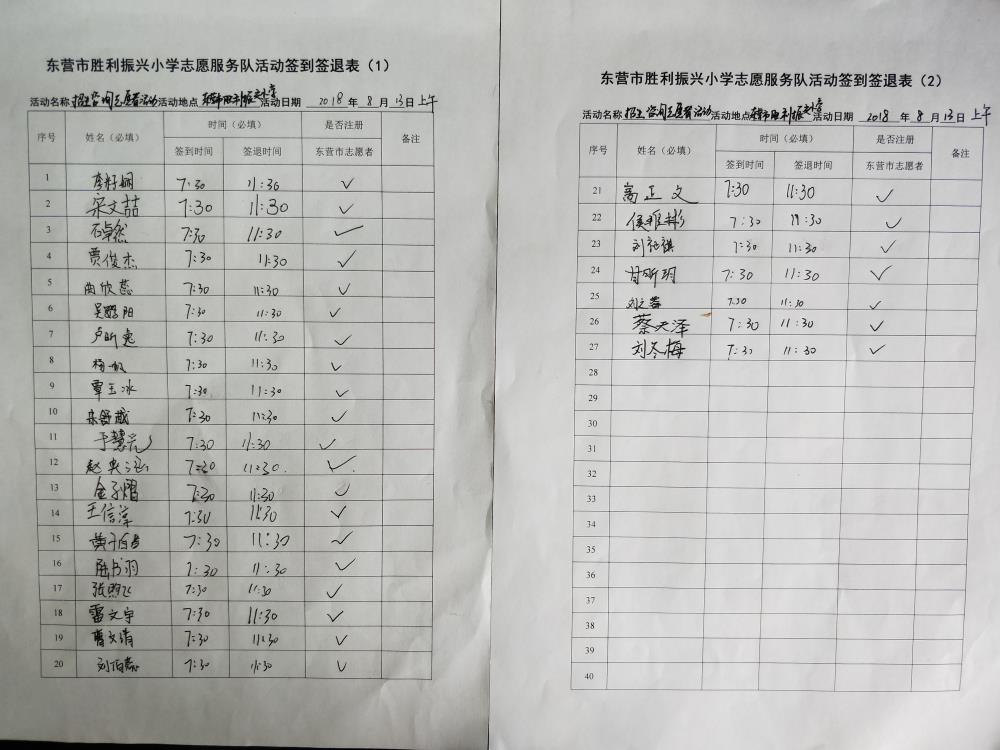 东营市胜利振兴小学志愿服务队活动签到签退表（1）
活动名称 招生咨询志愿者活动 活动地点 东营市胜利振兴小学 活动日期 2018 年 8 月 13 日 上午
序号 姓名（必填） 时间（必填） 是否注册 备注
签到时间 签退时间 东营市志愿者
1 7:30 11:30 ✓
2 宋文喆 7:30 11:30 ✓
3 石卓然 7:30 11:30 ✓
4 贾俊杰 7:30 11:30 ✓
5 曲欣蕊 7:30 11:30 ✓
6 吴 阳 7:30 11:30 ✓
7 卢昕 7:30 11:30 ✓
8 杨 7:30 11:30 ✓
9 覃玉冰 7:30 11:30 ✓
10 7:30 11:30 ✓
11 于慧 7:30 11:30 ✓
12 赵 7:30 11:30 ✓
13 金子熠 7:30 11:30 ✓
14 王信淳 7:30 11:30 ✓
15 黄子 7:30 11:30 ✓
16 陆书羽 7:30 11:30 ✓
17 张 飞 7:30 11:30 ✓
18 雷文宇 7:30 11:30 ✓
19 曹文清 7:30 11:30 ✓
20 刘怡 7:30 11:30 ✓
东营市胜利振兴小学志愿服务队活动签到签退表（2）
活动名称 招生咨询志愿者活动 活动地点 东营市胜利振兴小学 活动日期 2018 年 8 月 13 日 上午
序号 姓名（必填） 时间（必填） 是否注册 备注
签到时间 签退时间 东营市志愿者
21 高正文 7:30 11:30 ✓
22 侯雅彬 7:30 11:30 ✓
23 刘 祺 7:30 11:30 ✓
24 甘昕玥 7:30 11:30 ✓
25 刘 7:30 11:30 ✓
26 蔡天泽 7:30 11:30 ✓
27 刘冬梅 7:30 11:30 ✓
28
29
30
31
32
33
34
35
36
37
38
39
40